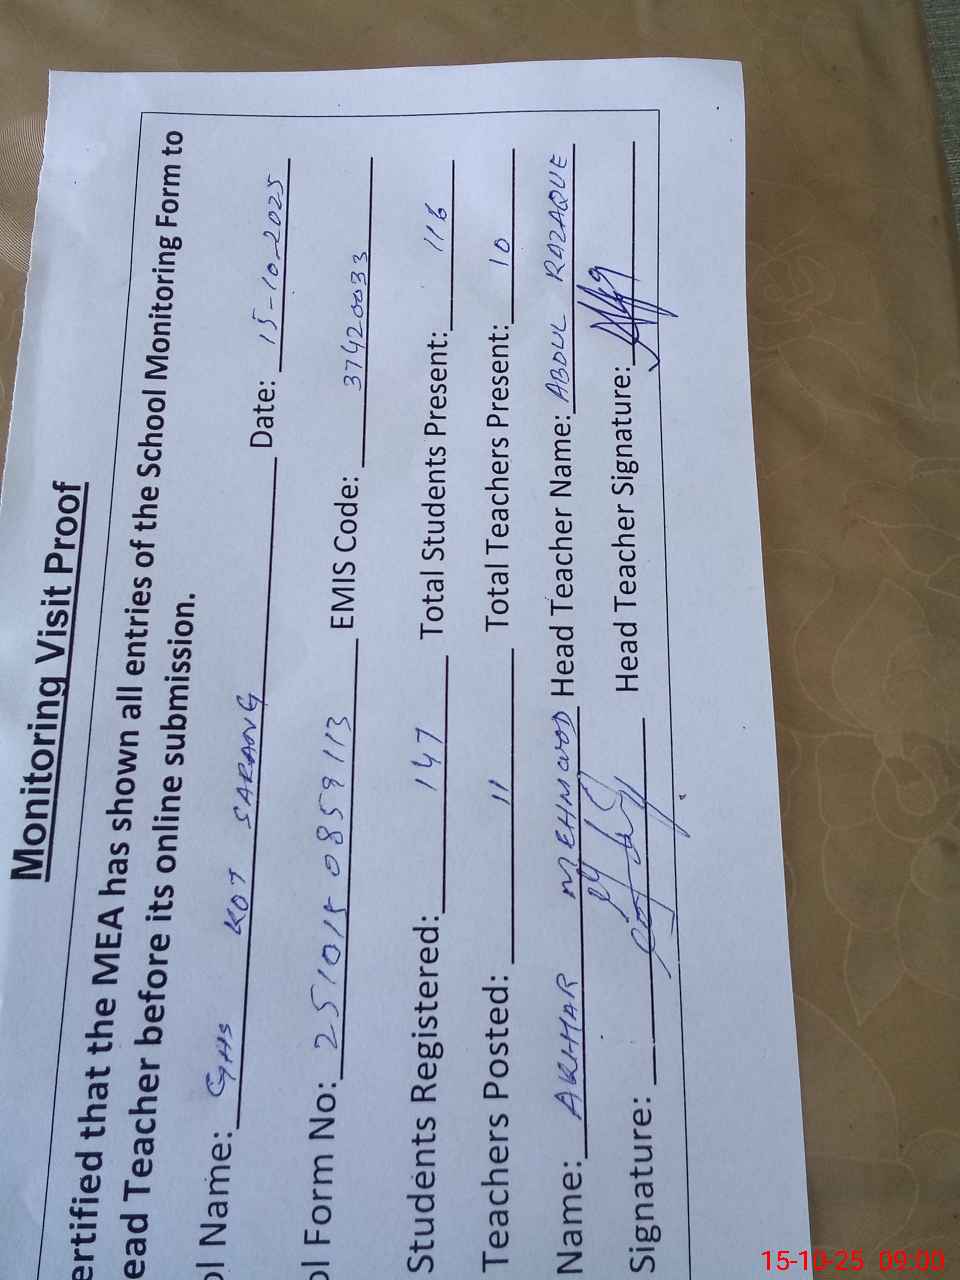 Monitoring Visit Proof
ertified that the MEA has shown all entries of the School Monitoring Form to
ead Teacher before its online submission.
ol Name: GHS KOT SARANG Date: 15-10-2025
ol Form No: 251015 0859113 EMIS Code: 37420033
Students Registered: 147 Total Students Present: 116
Teachers Posted: 11 Total Teachers Present: 10
Name: AKHTAR MEHMOOD Head Teacher Name: ABDUL RAZAQUE
Signature: Head Teacher Signature:
15-10-25 09:00